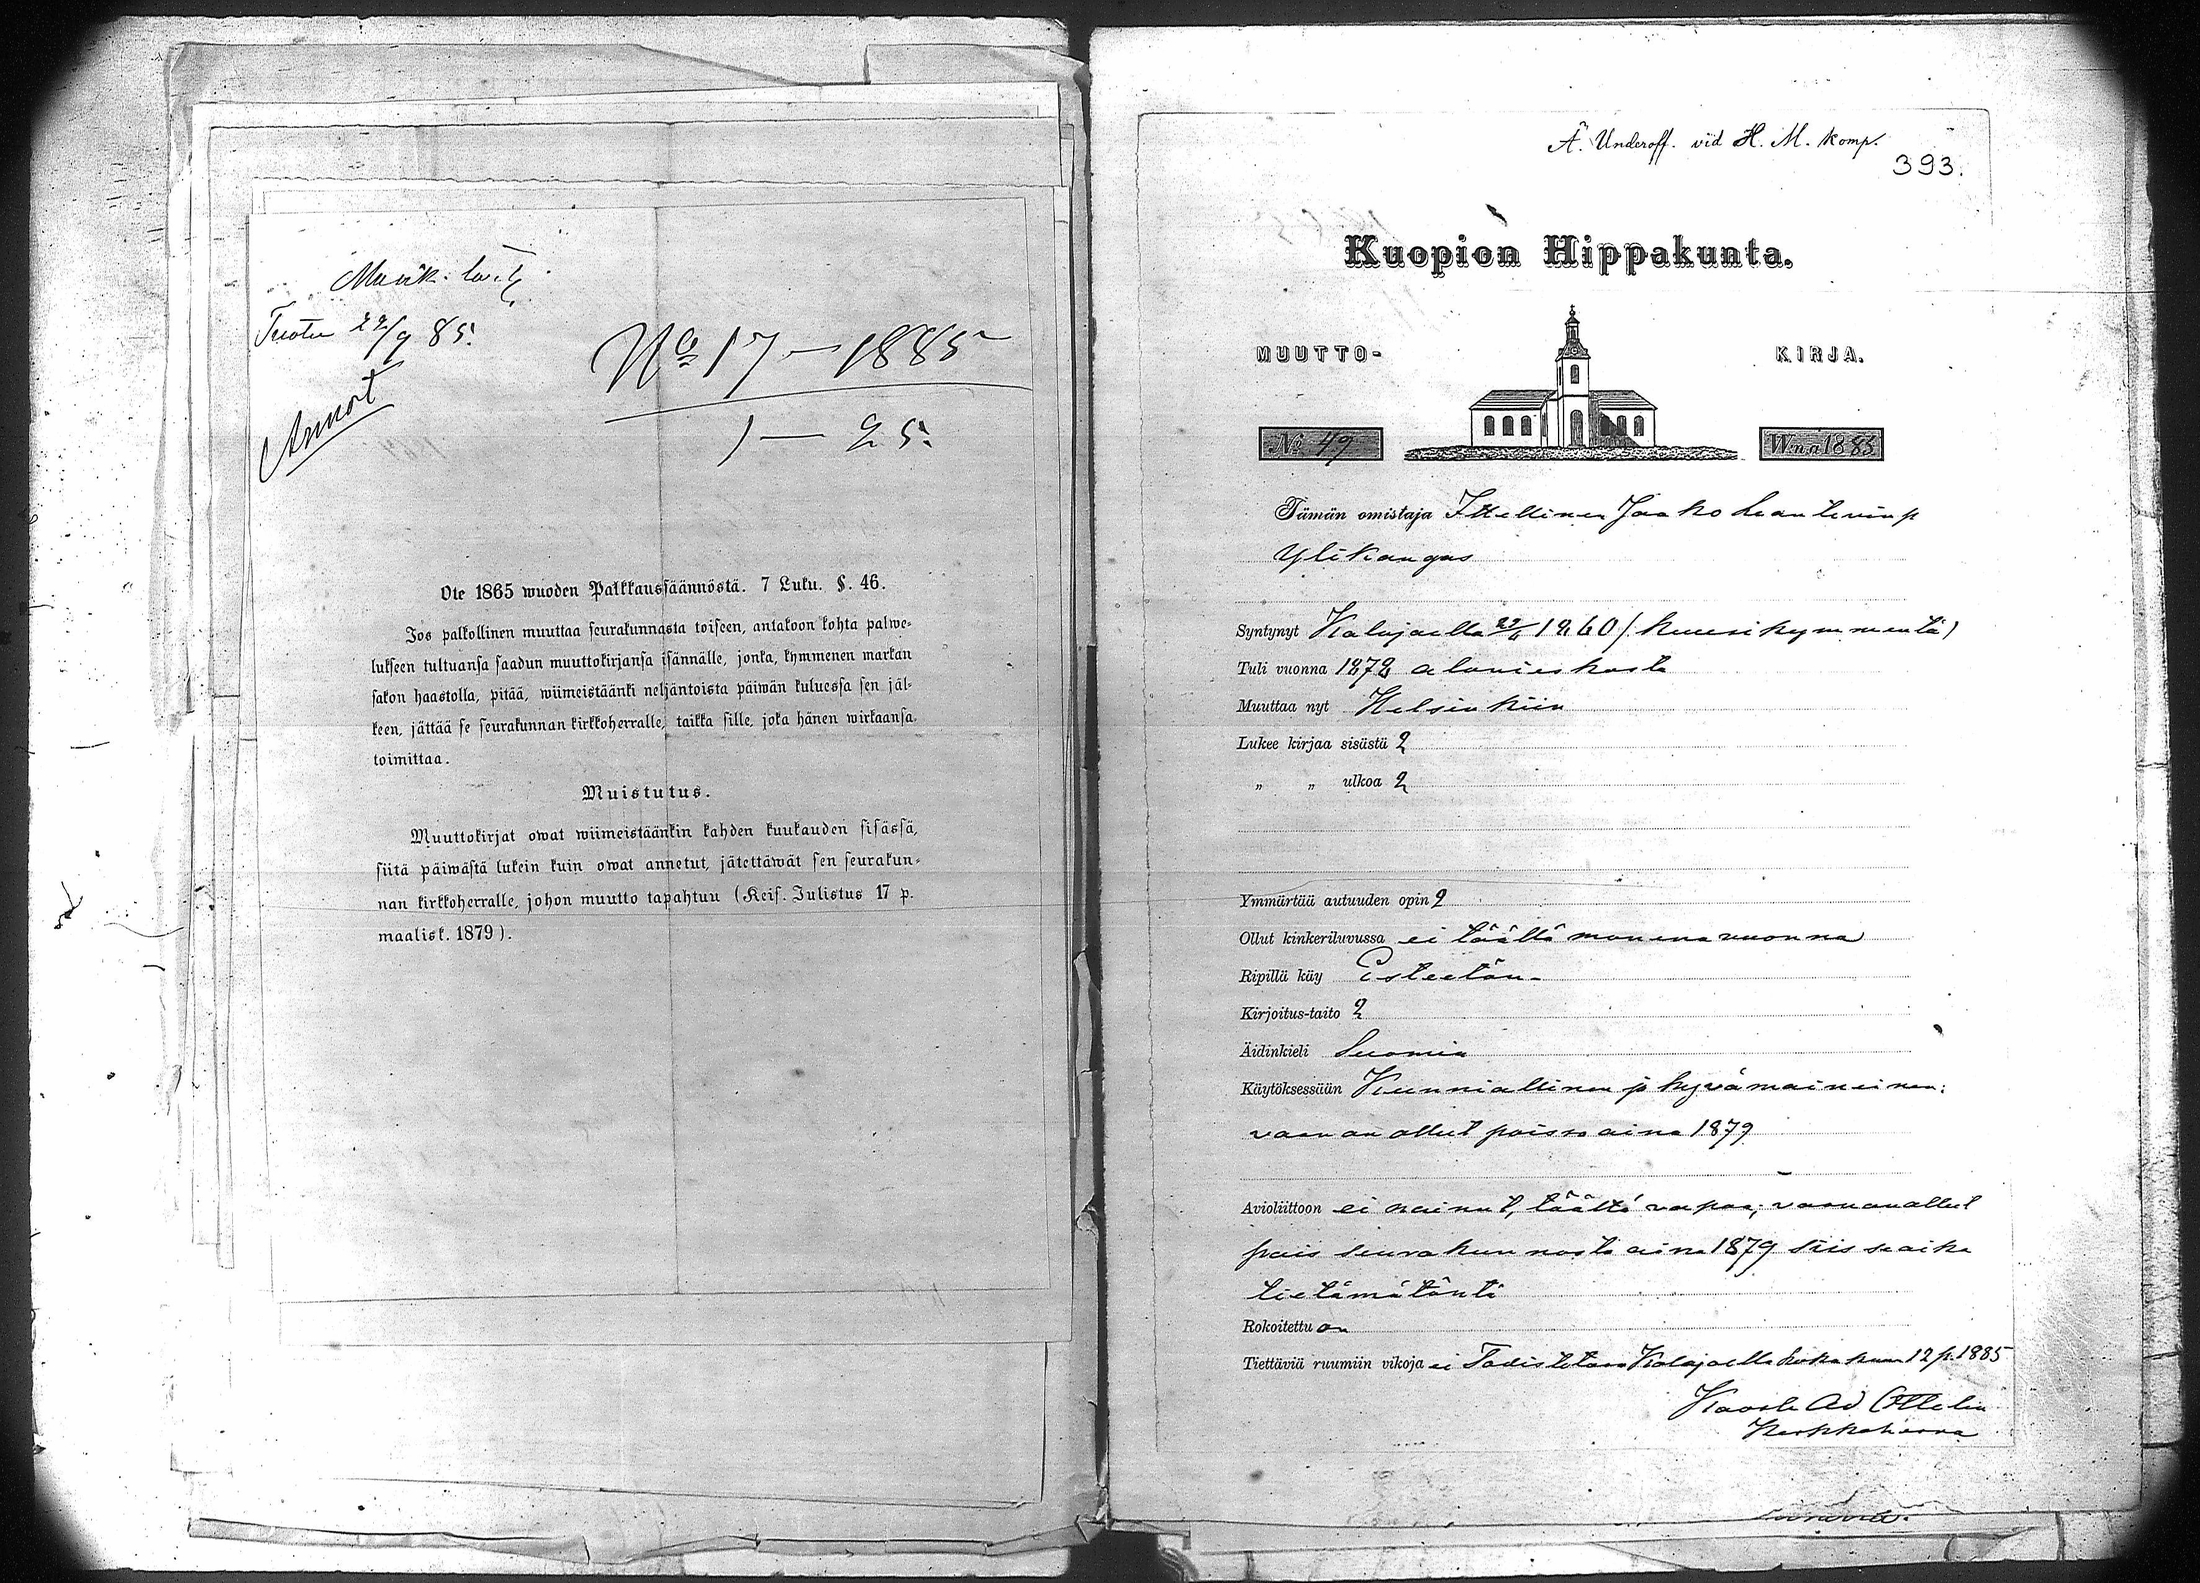 Tuotu 22/9 85.
No 17 — 1885
1 — 25.
Ote 1865 wuoden Palkkaussäännöstä. 7 Luku. §. 46.
Jos palkollinen muuttaa seurakunnasta toiseen, antakoon kohta palwe-
lukseen tultuansa saadun muuttokirjansa isännälle, jonka, kymmenen markan
sakon haastolla, pitää, wiimeistäänki neljäntoista päiwän kuluessa sen jäl-
keen, jättää se seurakunnan kirkkoherralle, taikka sille, joka hänen wirkaansa
toimittaa.
Muistutus.
Muuttokirjat owat wiimeistäänkin kahden kuukauden sisässä,
siitä päiwästä lukein kuin owat annetut, jätettäwät sen seurakun-
nan kirkkoherralle, johon muutto tapahtuu (Keis. Julistus 17 p.
maalisk. 1879).
Ä. Underoff. vid H. M. komp.
393.
Kuopion Hippakunta.
MUUTTO- KIRJA.
No 49 W:na 1885
Tämän omistaja Itsellinen Jaako Leantevinp
Ylikangas
Syntynyt Kalajoella 22/6 1860 (kuusikymmentä)
Tuli vuonna 1878 alavieskasta
Muuttaa nyt Helsinkiin
Lukee kirjaa sisästä 2
„ „ ulkoa 2
Ymmärtää autuuden opin 2
Ollut kinkeriluvussa ei täällä monena vuonna
Ripillä käy Esteetön
Kirjoitus-taito 2
Äidinkieli Suomia
Käytöksessään Kunniallinen ja hyvämaineinen:
vaan on ollut poissa aina 1879
Avioliittoon ei nainut, täältä vapaa; vaan on ollut
pois seurakunnasta aina 1879 siis se aika
tietämätöntä
Rokoitettu on
Tiettäviä ruumiin vikoja ei Todistetaan Kalajoella Lokakuun 12 p. 1885
Kaarle Ad Ottelin
Kirkkoherra